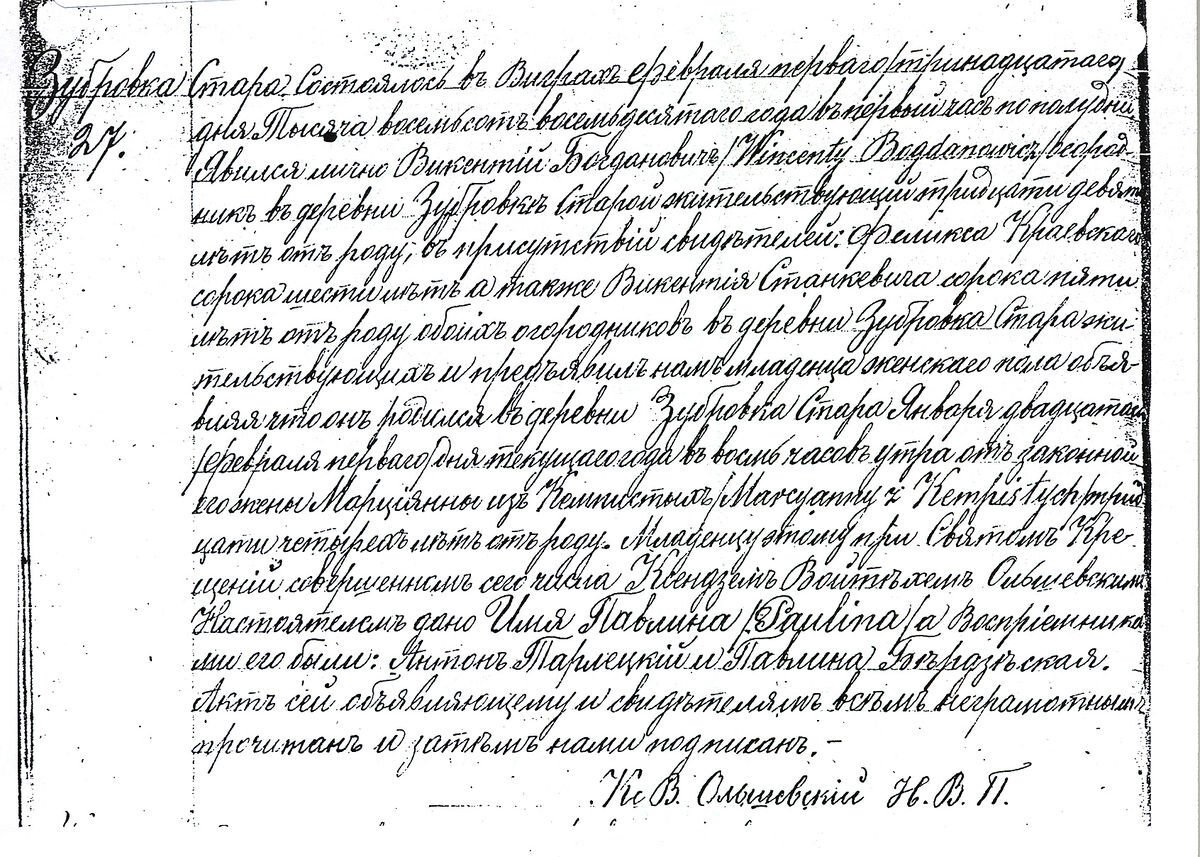 Зубровка Стара
27.
Состоялось въ Виграхъ Февраля перваго/тринадцатаго
дня Тысяча восемьсотъ восемьдесятаго года въ первый часъ по полудни.
Явился лично Викентій Богдановичъ /Wincenty Bogdanowicz/ огород-
никъ въ деревни Зубровкѣ Старой жительствующій тридцати девяти
лѣтъ отъ роду, въ присутствій свидѣтелей: Феликса Краевскаго
сорока шести лѣтъ а также Викентія Станкевича сорока пяти
лѣтъ отъ роду обоихъ огородниковъ въ деревни Зубровка Стара жи-
тельствующихъ и предъявилъ намъ младенца женскаго пола объя-
вляя что онъ родился въ деревни Зубровка Стара Января двадцатаго
/Февраля перваго/ дня текущаго года въ восемь часовъ утра отъ законной
его жены Марціянны изъ Кемпистыхъ /Marcyanny z Kempistych/ трид-
цати четырехъ лѣтъ отъ роду. Младенцу этому при Святомъ Кре-
щеній совершенномъ сего числа Ксендземъ Войтѣхемъ Ольшевскимъ
Настоятелемъ дано Имя Павлина /Paulina/ а Воспріемника-
ми его были: Антонъ Тарлецкій и Павлина Бѣрдзѣская.
Актъ сей объявляющему и свидѣтелямъ всѣмъ неграмотнымъ
прочитанъ и затѣмъ нами подписанъ. –
Кс В. Ольшевскій Н. В. П.